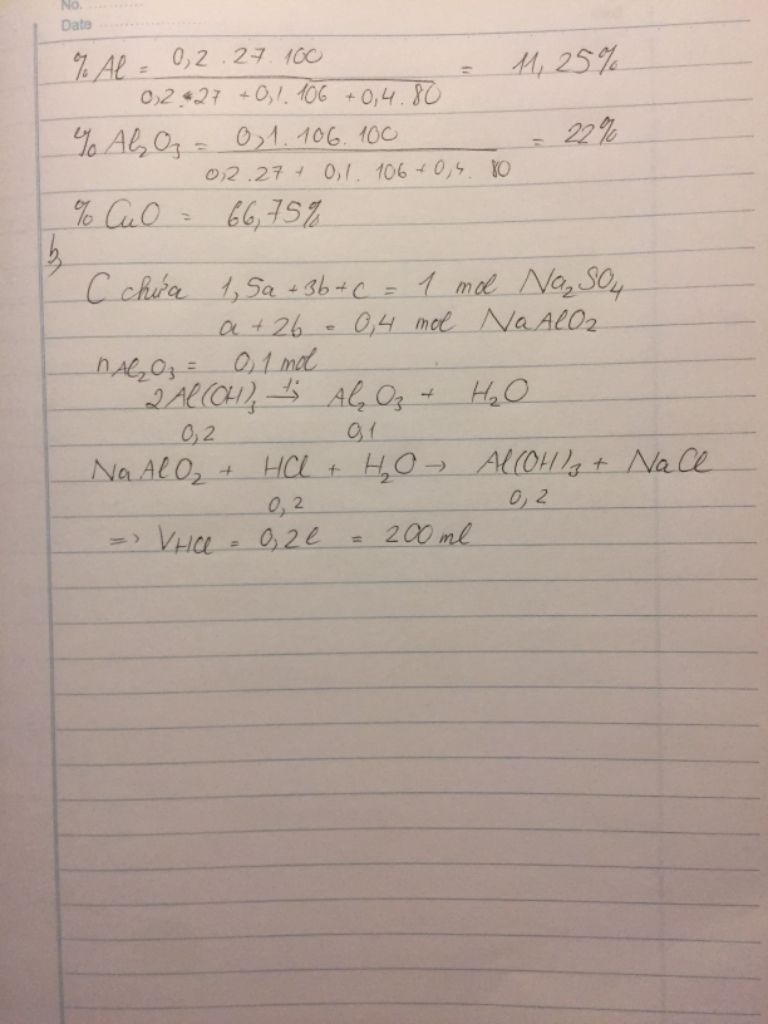 No. ............
Date ..................
% Al = 0,2 . 27 . 100 / 0,2 . 27 + 0,1 . 106 + 0,4 . 80 = 11,25%
% Al2O3 = 0,1 . 106 . 100 / 0,2 . 27 + 0,1 . 106 + 0,4 . 80 = 22%
% CuO = 66,75%
b,
C chứa 1,5a + 3b + c = 1 mol Na2SO4
a + 2b = 0,4 mol NaAlO2
nAl2O3 = 0,1 mol
2Al(OH)3 -t°-> Al2O3 + H2O
0,2 0,1
NaAlO2 + HCl + H2O → Al(OH)3 + NaCl
0,2 0,2
=> VHCl = 0,2l = 200 ml